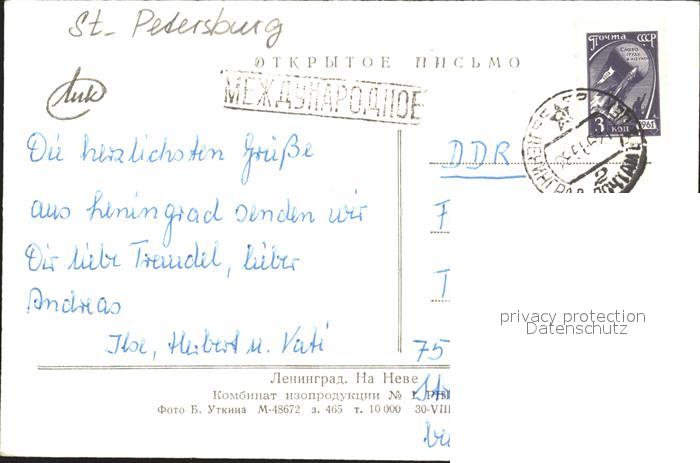 St. Petersburg
ОТКРЫТОЕ ПИСЬМО
Почта СССР
СЛАВА
ТРУДУ
И НАУКЕ
3 КОП 1961
МЕЖДУНАРОДНОЕ
ЛЕНИНГРАД
Die herzlichsten Grüße
DDR
aus Leningrad senden wir
F
Dir liebe Treudel, lieber
T
Andreas
privacy protection
Datenschutz
Ilse, Herbert u. Vati
75
Ленинград. На Неве
Комбинат изопродукции № 1
Фото Б. Уткина М-48672 з. 465 т. 10 000 30-VIII